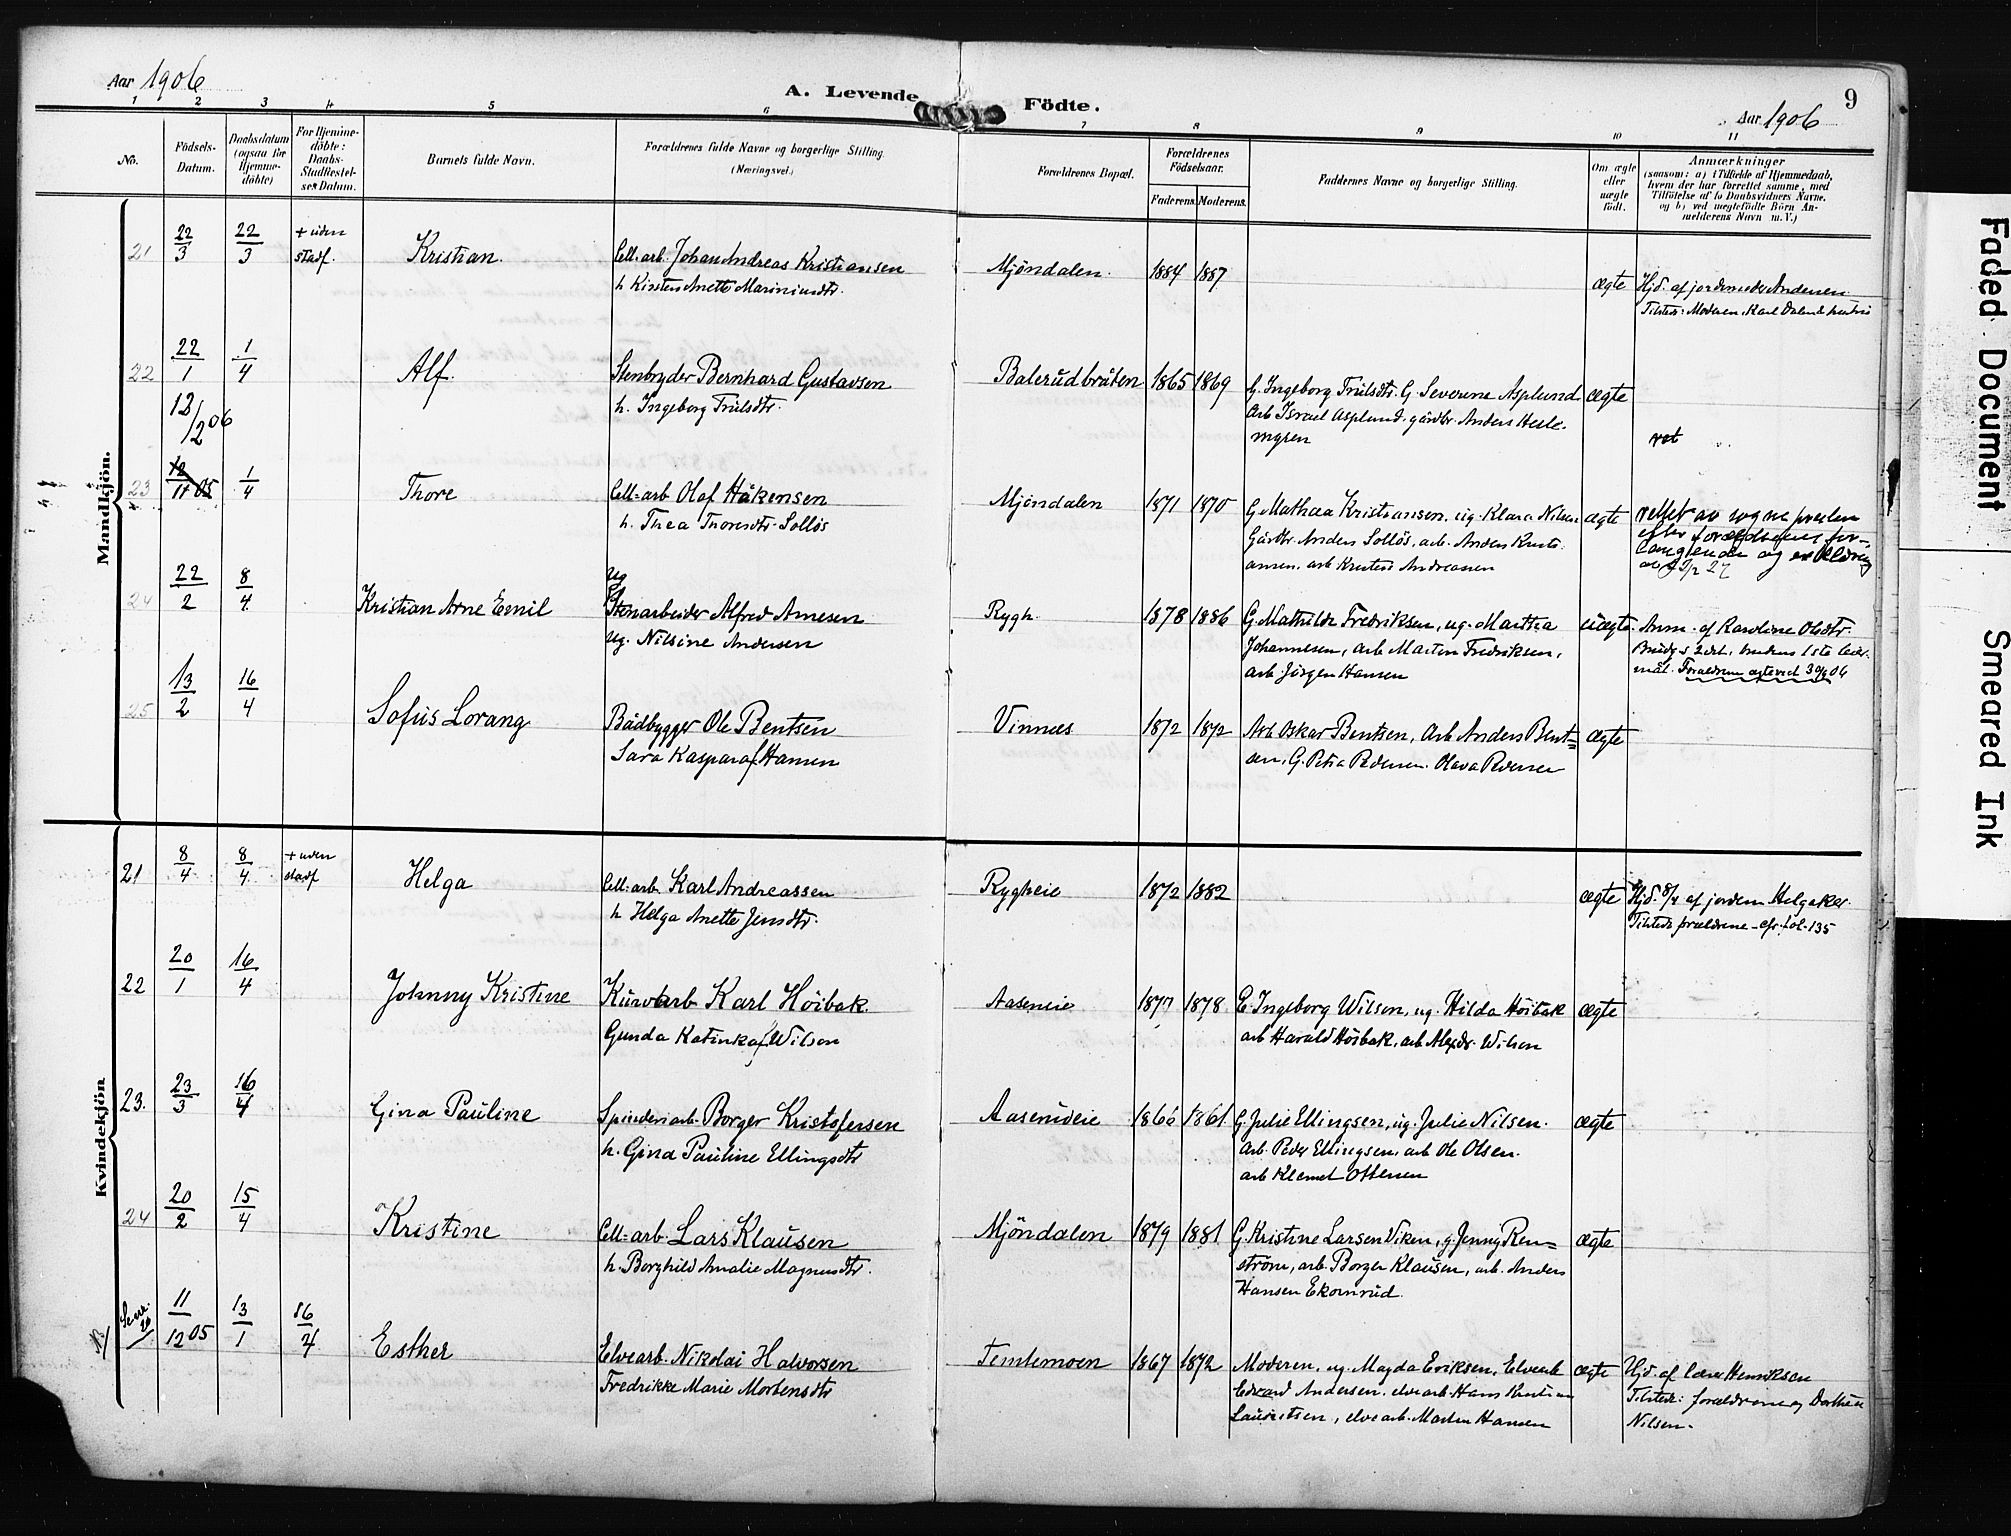 Aar 1906
A. Levende Födte.
9
Aar 1906
1 2 3 4 5 6 7 8 9 10 11
No.
Födsels-Datum.
Daabsdatum (ogsaa for Hjemmedöbte)
For Hjemmedöbte: Daabs-Stadfæstelses Datum.
Barnets fulde Navn.
Forældrenes fulde Navne og borgerlige Stilling.
(Næringsvei.)
Forældrenes Bopæl.
Forældrenes Födselsaar.
Faderens. Moderens.
Faddernes Navne og borgerlige Stilling.
Om ægte eller uægte födt.
Anmærkninger
(saasom: a) i Tilfælde af Hjemmedaab,
hvem der har forrettet samme, med
Tilföielse af to Daabsvidners Navne,
og b) ved uægtefödte Börn An-
melderens Navn m. V.)
Mandkjön.
21 22/3 22/3 + uden stadf. Kristian. Cell.arb. Johan Andreas Kristiansen Mjöndalen. 1884 1887 ægte Hjd. af jordemoder Andersen
h. Kirsten Anette Mariniusdtr. Tilstede: Moderen, Karl
22 22/1 1/4 Alf. Stenbryder Bernhard Gustavsen Balerudbråten 1865 1869 G. Ingeborg Trulsdtr. G. Severine Asplund ægte
h. Ingeborg Trulsdtr. Arb Israel Asplund. gårdbr. Anders Hesle-
myren
12/2 06
23 12/11 05 1/4 Thore Cell=arb Olaf Håkensen Mjöndalen 1871 1870 G. Mathea Kristiansen, ug. Klara Nilsen ægte rettet av sogne presten
h. Thea Thorendtr. Sollös Gårdbr. Anders Sollös, arb. Anders Krist- efter forældrenes for-
ansen, arb Kristen Andreassen langende og erklæring
24 22/2 8/4 Kristian Arne Emil ug Stenarbeider Alfred Arnesen Rygh. 1878 1886 G. Mathilde Fredriksen, ug. Martha uægte. Anm. af Karoline Olsdtr.
ug. Nilsine Andersen Johannesen, arb Martin Fredriksen, Brudg.s 2det, brudens 1ste leier-
arb. Jörgen Hansen mål. Forældrene ægteviet 06
25 13/2 16/4 Sofus Lorang Bådbygger Ole Bentsen Vinnæs 1872 1872 Arb Oskar Bentsen, Arb Anders Bent= ægte
Sara Kaspara f. Hansen sen, G. Petra Pedersen. Olava Pedersen
Kvindekjön
21 8/4 8/4 + uden stadf Helga Cell=arb. Karl Andreassen Rygheie 1872 1882 ægte Hjd. 8/4 af jordem Helgaker.
h Helga Anette Jensdtr. Tilstede forældrene - cfr. fol. 135
22 20/1 16/4 Johnny Kristine Kurvarb Karl Höibak. Aaseneie 1877 1878 E Ingeborg Wilson, ug. Hilda Höibak ægte
Gunda Katinka f. Wilson arb Harald Höibak, arb Alexdr. Wilson
23. 23/3 16/4 Gina Pauline Spinderiarb. Borger Kristofersen Aaserudeie 1866 1861 G. Julie Ellingsen, ug. Julie Nilsen. ægte
h. Gina Pauline Ellingsdtr arb. Peder Ellingsen, arb Ole Olsen.
arb Klemet Ottersen
24 20/2 15/4 Kristine Cell=arb. Lars Klausen Mjöndalen 1879 1881 G. Kristine Larsen Viken, g. Jenny Ren= ægte
h. Borghild Amalie Magnusdtr. ström, arb. Borger Klausen, arb. Anders
Hansen Ekornrud.
11/12 05 13/1 16/4 Esther Elvearb. Nikolai Halvorsen Temtemoen 1867 1872 Moderen, ug. Magda Eriksen, Elvearb ægte Hjd. af lærer Henriksen
Fredrikke Marie Mortensdtr Edvard Andersen, elvearb. Hans Kristian Tilstede: forældrene og Dorthea
Lauritsen, elvearb. Martin Hansen Nilsen.
Faded Document
Smeared Ink